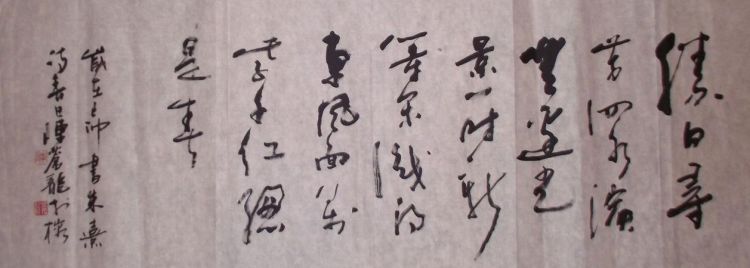 勝日尋
芳泗水濱
無邊光
景一時新
等閒識得
東風面萬
紫千紅總
是春
歲在書朱熹
詩春日陳蒼龍於